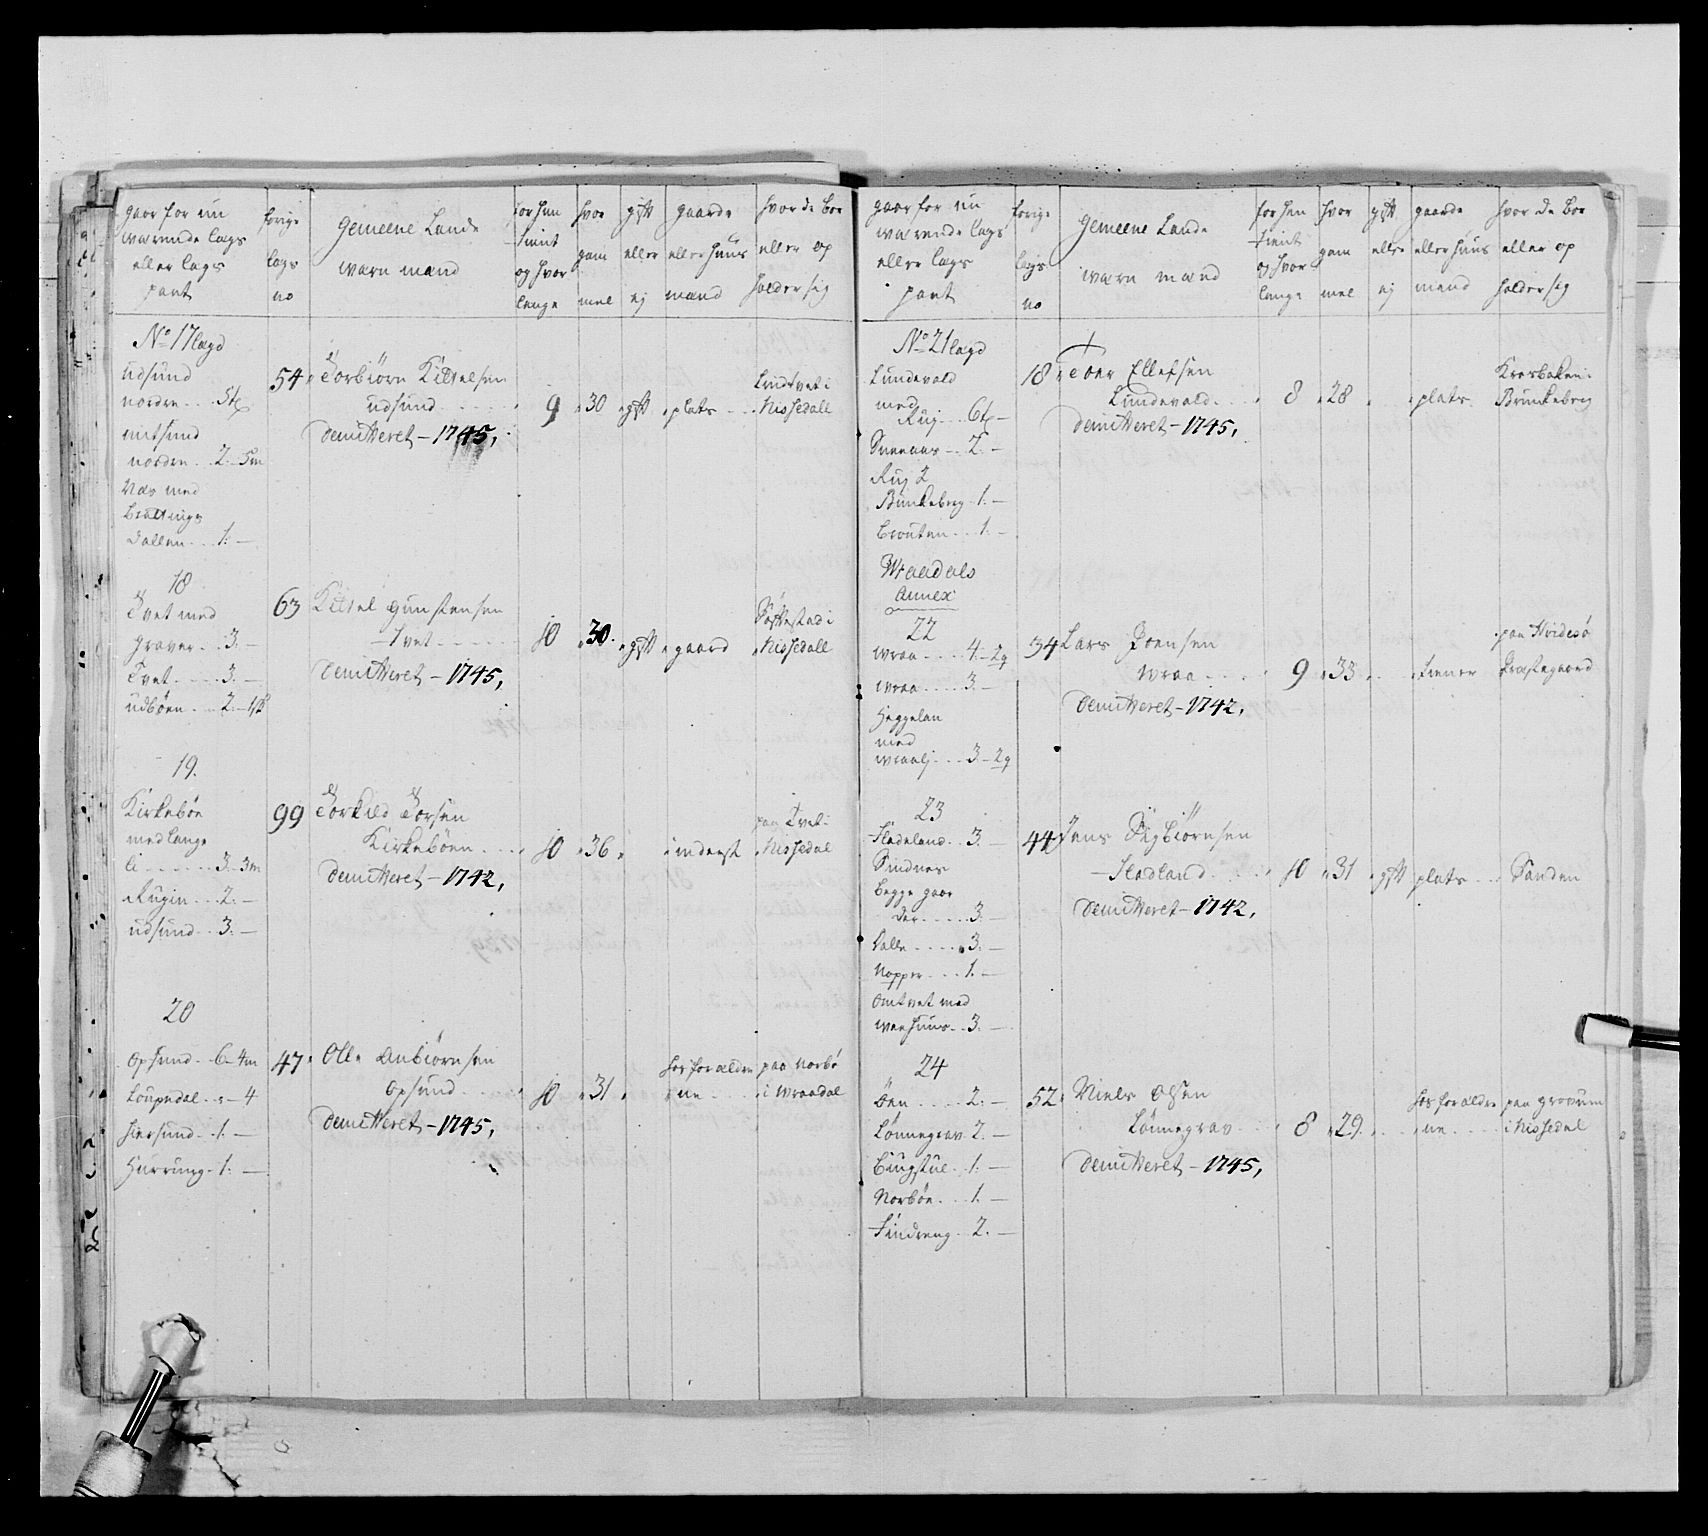 gaar for nu
warende lægs
eller lægs
part
forige
lægs
no
gemeene Lande
wærn mænd
for hen
tient
og hvor
lenge
hvor
gam
mel
gift
eller
ej
gaards
eller huus
mænd
hvor de boe
eller op
holder sig
No 17 lægd
udsund
norden ... 5
mitsund
norden .. 2 - 5m
Næs med
dallen ... 1. —
54
Torbiørn Kittelsen
udsund
demitteret - 1745,
9
30
gift
plats
Lindtvet i
Nissedall
18
Tvet med
graver .. 3. —
Tvet ..... 3. —
udbøen .. 2 -
63
Kittel gunstensen
Tvet
demitteret - 1745,
10
30.
gift
gaard
i
Nissedall
19.
Kirkebøe
med lange
li ...... 3. 3m
Rugin ... 2. —
udsund .. 3. —
99
Torkild Torsen
Kirkebøen
demitteret - 1742,
10
36
inderst
paa Tvet i
Nissedal
20
opsund .. 6 4m
Loupedal .. - 4
hiersund .. 1. —
Hurrung .. 1. —
47
Olle anbiørnsen
opsund
demitteret - 1745,
10
31
hos foraldre
ne
paa norbø
i wraadal
gaar for nu
warende lægs
eller lægs
part
forige
lægs
no
gemeene Lande
wærn mænd
for hen
tient
og hvor
lenge
hvor
gam
mel
gift
eller
ej
gaards
eller huus
mænd
hvor de boe
eller op
holder sig
No 21 lægd
Lundevald
med
Rug .. 6 —
Sneaas .. 2. —
Rug 2
Brunkeberg . 1. —
brouten ... 1. —
18
Toer Ellefsen
Lundevald
demitteret - 1745,
8
28
plats
Brunkeberg
Wraadals
Annex
22
wraa ..... 4. - 2g
wraa ..... 3. —
heggelan
med
wraalj ... 3. 2g
34
Lars Joensen
wraa
demitteret - 1742,
9
33
tiener
paa Hvidesø
Prastegaard
23
Fladeland . 3. —
Sindnes
begge gaar
der ..... 3. —
Dalle ..... 3. —
Napper ... 1. —
omtvet med
.. 3. —
44
Jens Sigbiørnsen
Fladland
demitteret - 1742,
10
31
gift
plats
Sanden
24
Øen ..... 2. —
Lønnegrav 2. —
bugstue .. 1. —
Norbøe ... 1. —
Findreng .. 2. —
52
Niels olsen
Lønnegrav
demitteret - 1745,
8
29.
hos foraldre
ne
paa
i Nissedal